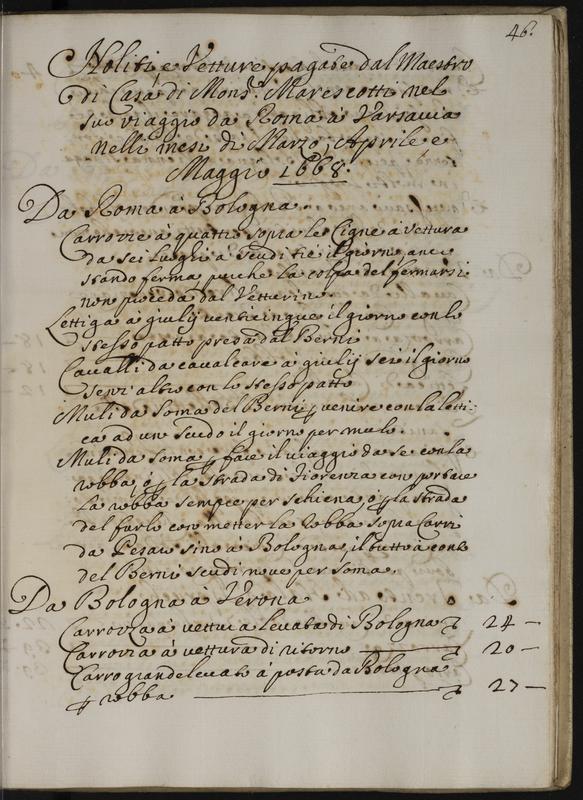 46.
Noliti e Vetture pagate dal Maestro
di Casa di Mons.r Marescotti nel
suo viaggio da Roma à Varsavia
nelli mesi di Marzo, Aprile, e
Maggio 1668.
Da Roma à Bologna.
Carrozze à quattro sopra le Cigne à vettura
da sei luoghi à scudi tré il giorno, anco
stando ferma, purche la colpa del fermarsi
non proceda dal Vetturino.
Lettiga à giulij venticinque il giorno con lo
stesso patto presa dal Berni
Cavalli da cavalcare à giulij sei il giorno
senz'altro con lo stesso patto
Muli da soma del Berni p venire con la letti-
ca ad uno scudo il giorno per mulo.
Muli da soma p fare il viaggio da se con la
robba ò p la strada di Fiorenza con portare
la robba sempre per schiena, ò p la strada
del furlo con metter la robba sopra Carri
da Pesaro sino à Bologna, il tutto à conto
del Berni scudi nove per soma.
Da Bologna a Verona
Carrozza à vettura levata di Bologna 24 —
Carrozza à vettura di ritorno — 20 —
Carro grande levato à posta da Bologna
p robba — 27 —